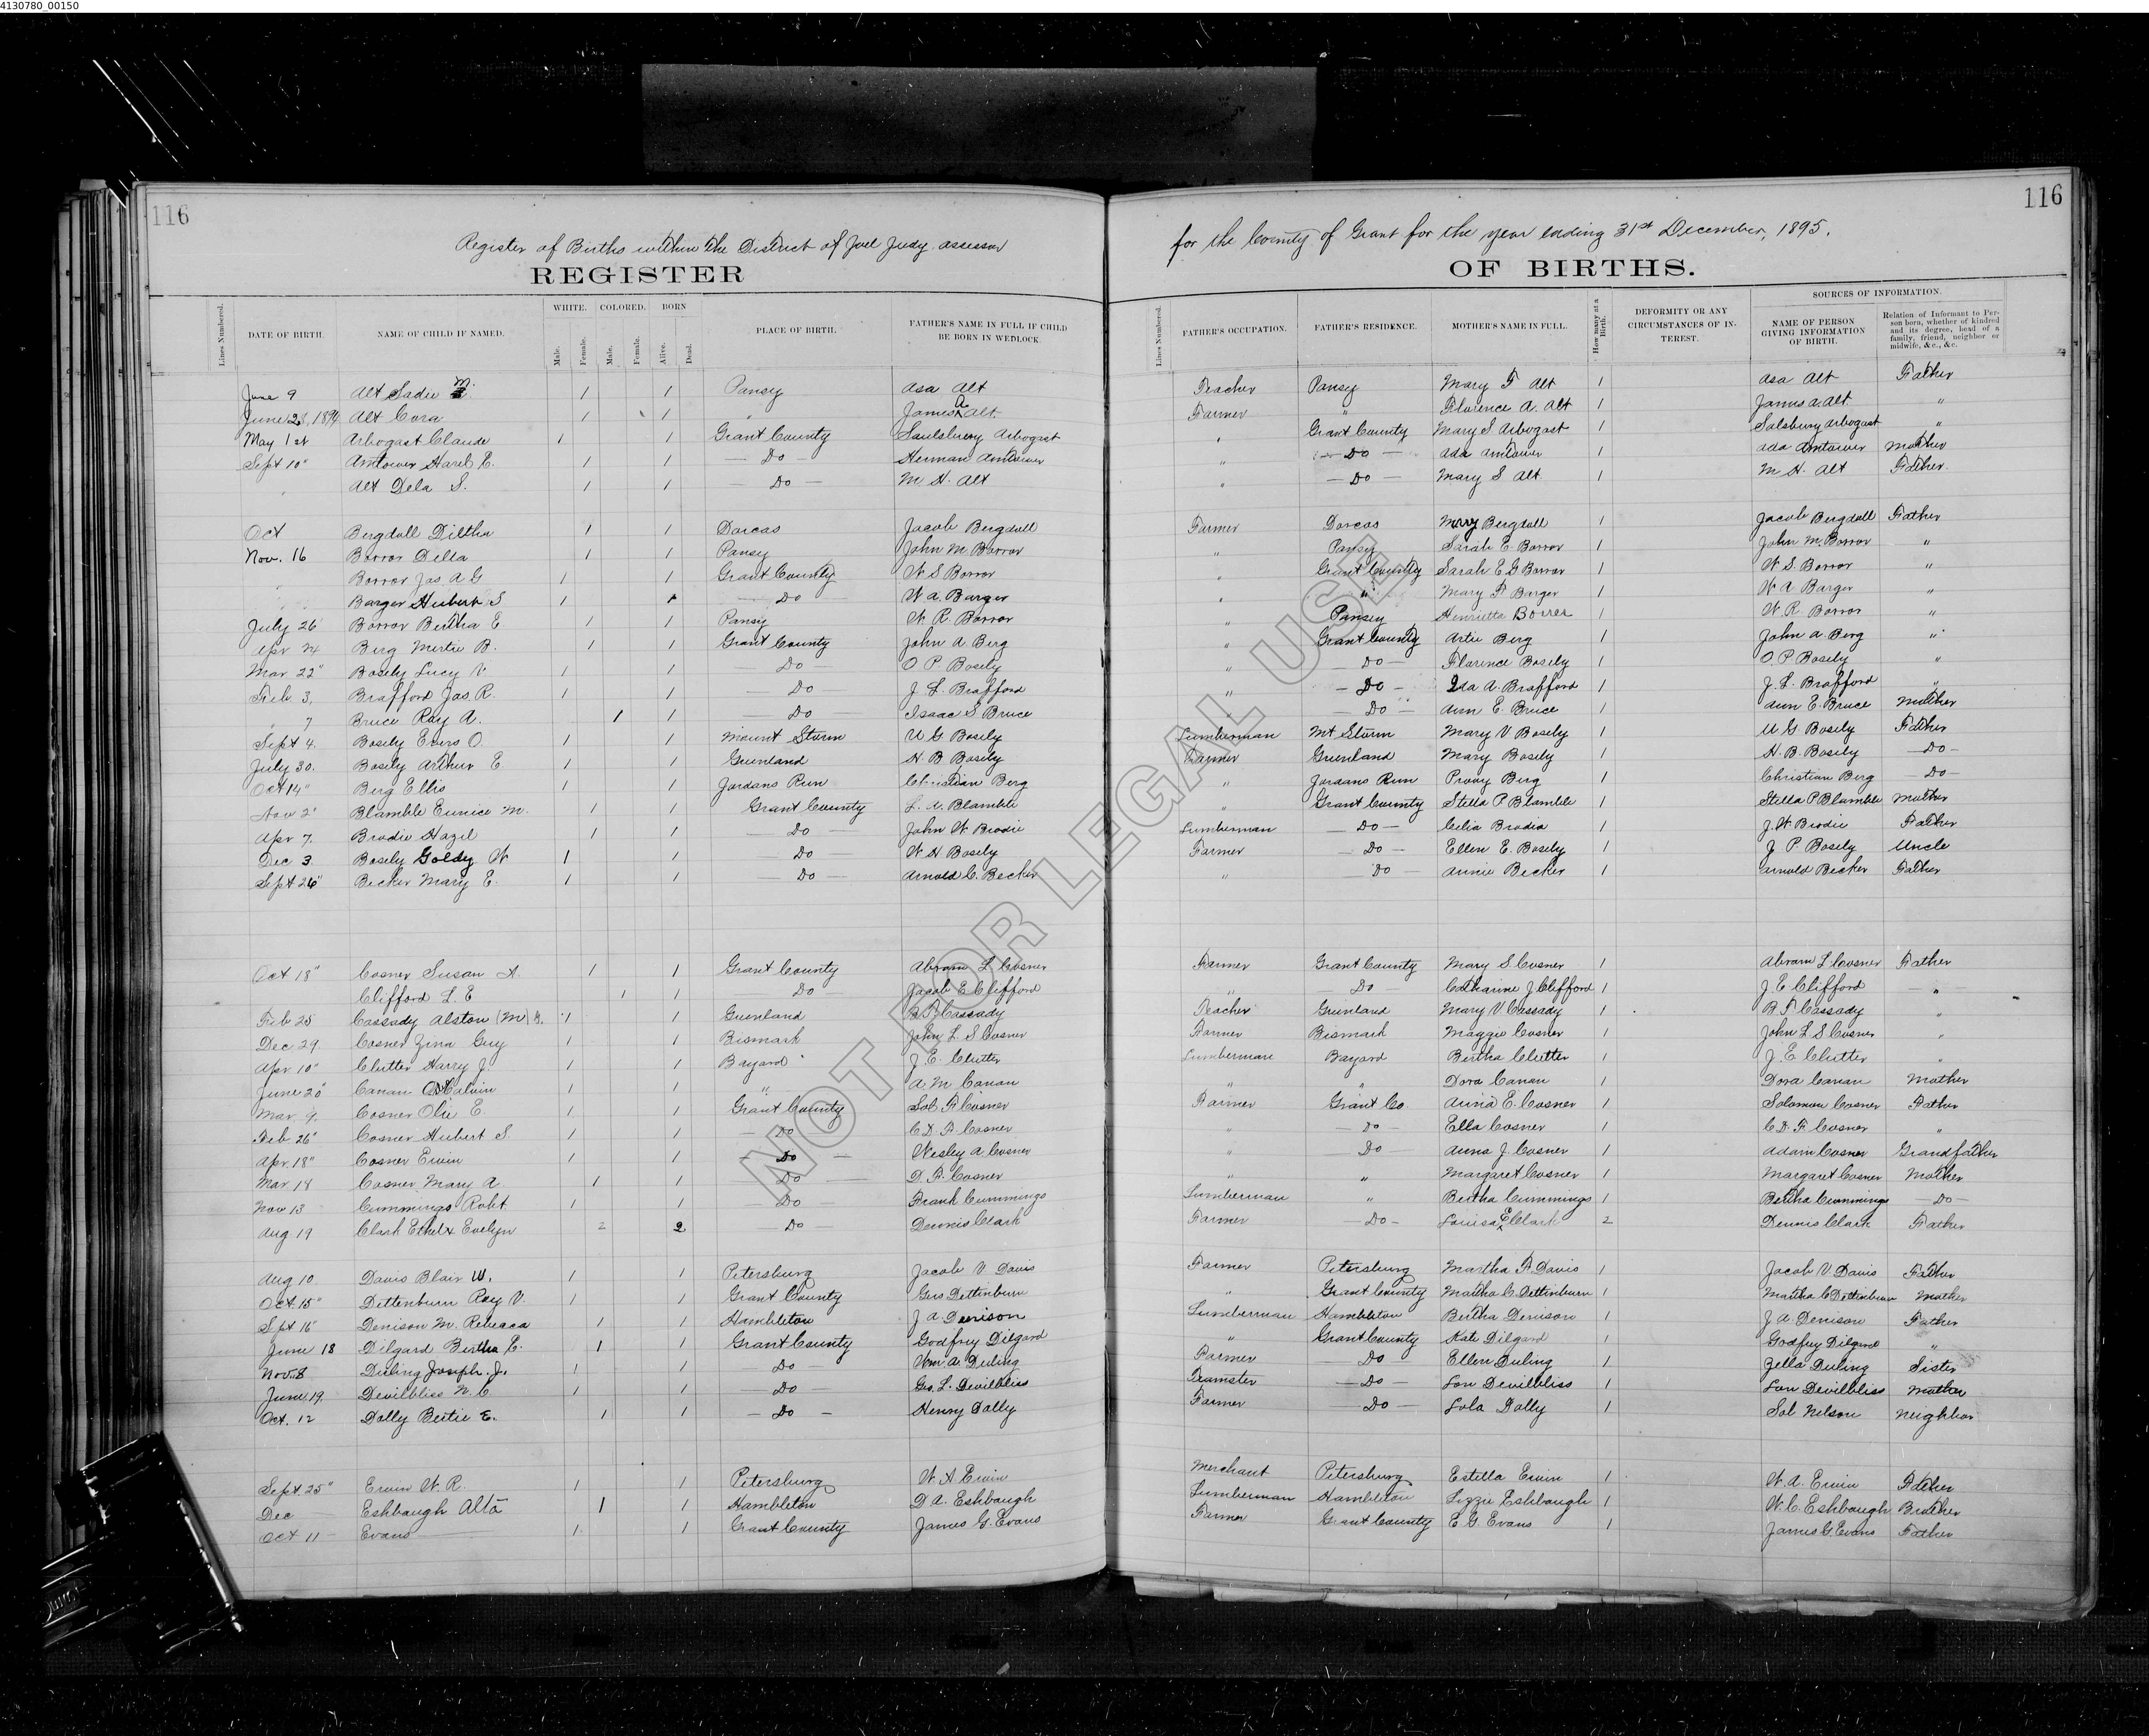 4130780_00150
116
116
Register of Births within the District of Joel Judy assessor for the County of Grant for the year ending 31st December, 1895.
REGISTER OF BIRTHS.
Lines Numbered. DATE OF BIRTH. NAME OF CHILD IF NAMED. WHITE. Male. Female. COLORED. Male. Female. BORN Alive. Dead. PLACE OF BIRTH. FATHER'S NAME IN FULL IF CHILD BE BORN IN WEDLOCK. Lines Numbered. FATHER'S OCCUPATION. FATHER'S RESIDENCE. MOTHER'S NAME IN FULL. How many at a Birth. DEFORMITY OR ANY CIRCUMSTANCES OF INTEREST. SOURCES OF INFORMATION. NAME OF PERSON GIVING INFORMATION OF BIRTH. Relation of Informant to Person born, whether of kindred and its degree, head of a family, friend, neighbor or midwife, &c., &c.
June 9 Alt Sadie M. 1 1 Pansy Asa Alt Teacher Pansy Mary F Alt 1 Asa Alt Father
June 28, 1894 Alt Cora 1 1 " James A Alt Farmer " Florence A. Alt 1 James A. Alt "
May 1st Arbogast Claude 1 1 Grant County Saulsbury Arbogast " Grant County Mary S Arbogast 1 Salsbury Arbogast "
Sept 10" Amtower Hazel E. 1 1 Do Herman Amtower " Do Ada Amtower 1 Ada Amtower Mother
" Alt Dela S. 1 1 Do M. H. Alt " Do Mary S Alt. 1 M H. Alt Father
Oct Bergdoll Diltha 1 1 Dorcas Jacob Bergdoll Farmer Dorcas Mary Bergdoll 1 Jacob Bergdoll Father
Nov. 16 Borror Della 1 1 Pansy John M Borror " Pansy Sarah E. Borror 1 John M. Borror "
" Borror Jas. A G 1 1 Grant County W S Borror " Grant County Sarah E G Borror 1 W S. Borror "
Barger Hubert S 1 1 Do W. A. Barger " " Mary F Barger 1 W A Barger "
July 26 Borror Bertha E 1 1 Pansy W. R. Borror " Pansy Henrietta Borrer 1 W R. Borror "
Apr 24 Berg Mertie B. 1 1 Grant County John A Berg " Grant County Artie Berg 1 John A Berg "
Mar 22" Bosely Lucy V. 1 1 Do O. P. Bosely " Do Florence Bosely 1 O. P. Bosely "
Feb 3, Brafford Jas. R. 1 1 Do J. L. Brafford " Do Ida A. Brafford 1 J. L. Brafford "
" 7 Bruce Ray A. 1 1 Do Isaac S Bruce Do Ann E. Bruce 1 Ann E. Bruce Mother
Sept 4. Bosely Evers O. 1 1 Mount Storm U G Bosely Lumberman Mt. Storm Mary V Bosely 1 U G. Bosely Father
July 30. Bosely Arthur E. 1 1 Greenland H B Bosely Farmer Greenland Mary Bosely 1 H. B. Bosely Do
Oct 14" Berg Ellis 1 1 Jordans Run Christian Berg " Jordans Run Provy Berg 1 Christian Berg Do
Nov 2" Blamble Eunice M. 1 1 Grant County L. A. Blamble " Grant County Stella P Blamble 1 Stella P Blamble Mother
Apr 7. Brodie Hazel 1 1 Do John W Brodie Lumberman Do Celia Brodie 1 J. W Brodie Father
Dec 3 Bosely Goldy W 1 1 Do W. H Bosely Farmer Do Ellen E. Bosely 1 J. P. Bosely Uncle
Sept 26" Becker Mary E. 1 1 Do Arnold C. Becker " Do Annie Becker 1 Arnold Becker Father
Oct 18" Cosner Susan A. 1 1 Grant County Abram L Cosner Farmer Grant County Mary S. Cosner 1 Abram L Cosner Father
Clifford L. E 1 1 Do Jacob E Clifford " Do Catharine J Clifford 1 J. E. Clifford "
Feb 25 Cassady Alston (M) G. 1 1 Greenland B. F. Cassady Teacher Greenland Mary V Cassady 1 B. F. Cassady "
Dec 29. Cosner Zina Guy 1 1 Bismark John L. S Cosner Farmer Bismark Maggie Cosner 1 John L S Cosner "
Apr. 10" Clutter Harry J. 1 1 Bayard J. E. Clutter Lumberman Bayard Bertha Clutter 1 J. E. Clutter "
June 20" Canan Calvin 1 1 " A. M Canan " " Dora Canan 1 Dora Canan Mother
Mar. 9. Cosner Olie E. 1 1 Grant County Sol. F. Cosner Farmer Grant Co. Anna E. Cosner 1 Solomon Cosner Father
Feb 26" Cosner Hubert S. 1 1 Do C. D. F. Cosner " Do Ella Cosner 1 C. D. F. Cosner "
Apr. 18" Cosner Ervin 1 1 Do Wesley A. Cosner " Do Anna J. Cosner 1 Adam Cosner Grandfather
Mar 14 Cosner Mary A. 1 1 Do D. F. Cosner " " Margaret Cosner 1 Margaret Cosner Mother
Nov 13 Cummings Robt 1 1 Do Frank Cummings Lumberman " Bertha Cummings 1 Bertha Cummings Do
Aug 19 Clark Ethel & Evelyn 2 2 Do Dennis Clark Farmer Do Louisa E Clark 2 Dennis Clark Father
Aug 10 Davis Blair W. 1 1 Petersburg Jacob V Davis Farmer Petersburg Martha F. Davis 1 Jacob V. Davis Father
Oct. 15" Dettenburn Ray V. 1 1 Grant County Geo Dettinburn " Grant County Martha C. Dettinburn 1 Martha C Dettinburn Mother
Sept 16" Denison M. Rebecca 1 1 Hambleton J A. Denison Lumberman Hambleton Bertha Denison 1 J A. Denison Father
June 18 Dilgard Bertha E. 1 1 Grant County Godfrey Dilgard " Grant County Kate Dilgard 1 Godfrey Dilgard "
Nov. 8 Duling Joseph. J. 1 1 Do Wm. A. Duling Farmer Do Ellen Duling 1 Zella Duling Sister
June 19. Devilbliss N. C. 1 1 Do Geo. L. Devilbliss Teamster Do Lou Devilbliss 1 Lou Devilbliss Mother
Oct. 12 Dolly Bertie E. 1 1 Do Henry Dolly Farmer Do Lola Dolly 1 Sol Nelson Neighbor
Sept. 25" Ervin W. R. 1 1 Petersburg W. A Ervin Merchant Petersburg Estella Ervin 1 W. A. Ervin Father
Dec Eshbaugh Alta 1 1 Hambleton D. A. Eshbaugh Lumberman Hambleton Lizzie Eshbaugh 1 W. C. Eshbaugh Brother
Oct 11 Evans 1 1 Grant County James G. Evans Farmer Grant County E G. Evans 1 James G. Evans Father
NOT FOR LEGAL USE